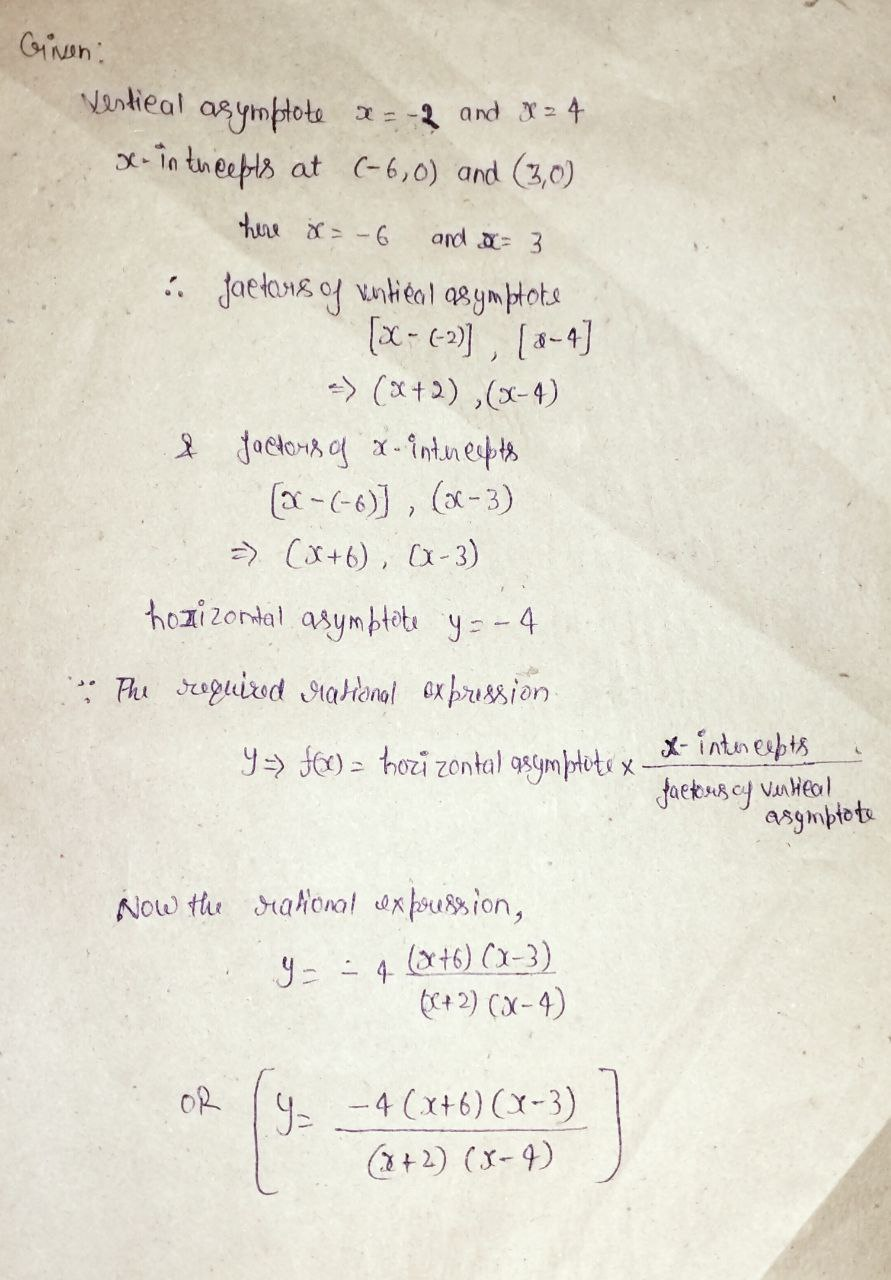 Given:
Vertical asymptote x = -2 and x = 4
x-intercepts at (-6,0) and (3,0)
here x = -6 and x = 3
∴ factors of vertical asymptote
[x - (-2)] , [x-4]
=> (x+2) ,(x-4)
& factors of x-intercepts
[x-(-6)] , (x-3)
=> (x+6), (x-3)
horizontal asymptote y = -4
∵ The required rational expression
y => f(x) = horizontal asymptote x x-intercepts / factors of vertical asymptote
Now the rational expression,
y = -4 (x+6) (x-3) / (x+2) (x-4)
OR [ y = -4 (x+6) (x-3) / (x+2) (x-4) ]